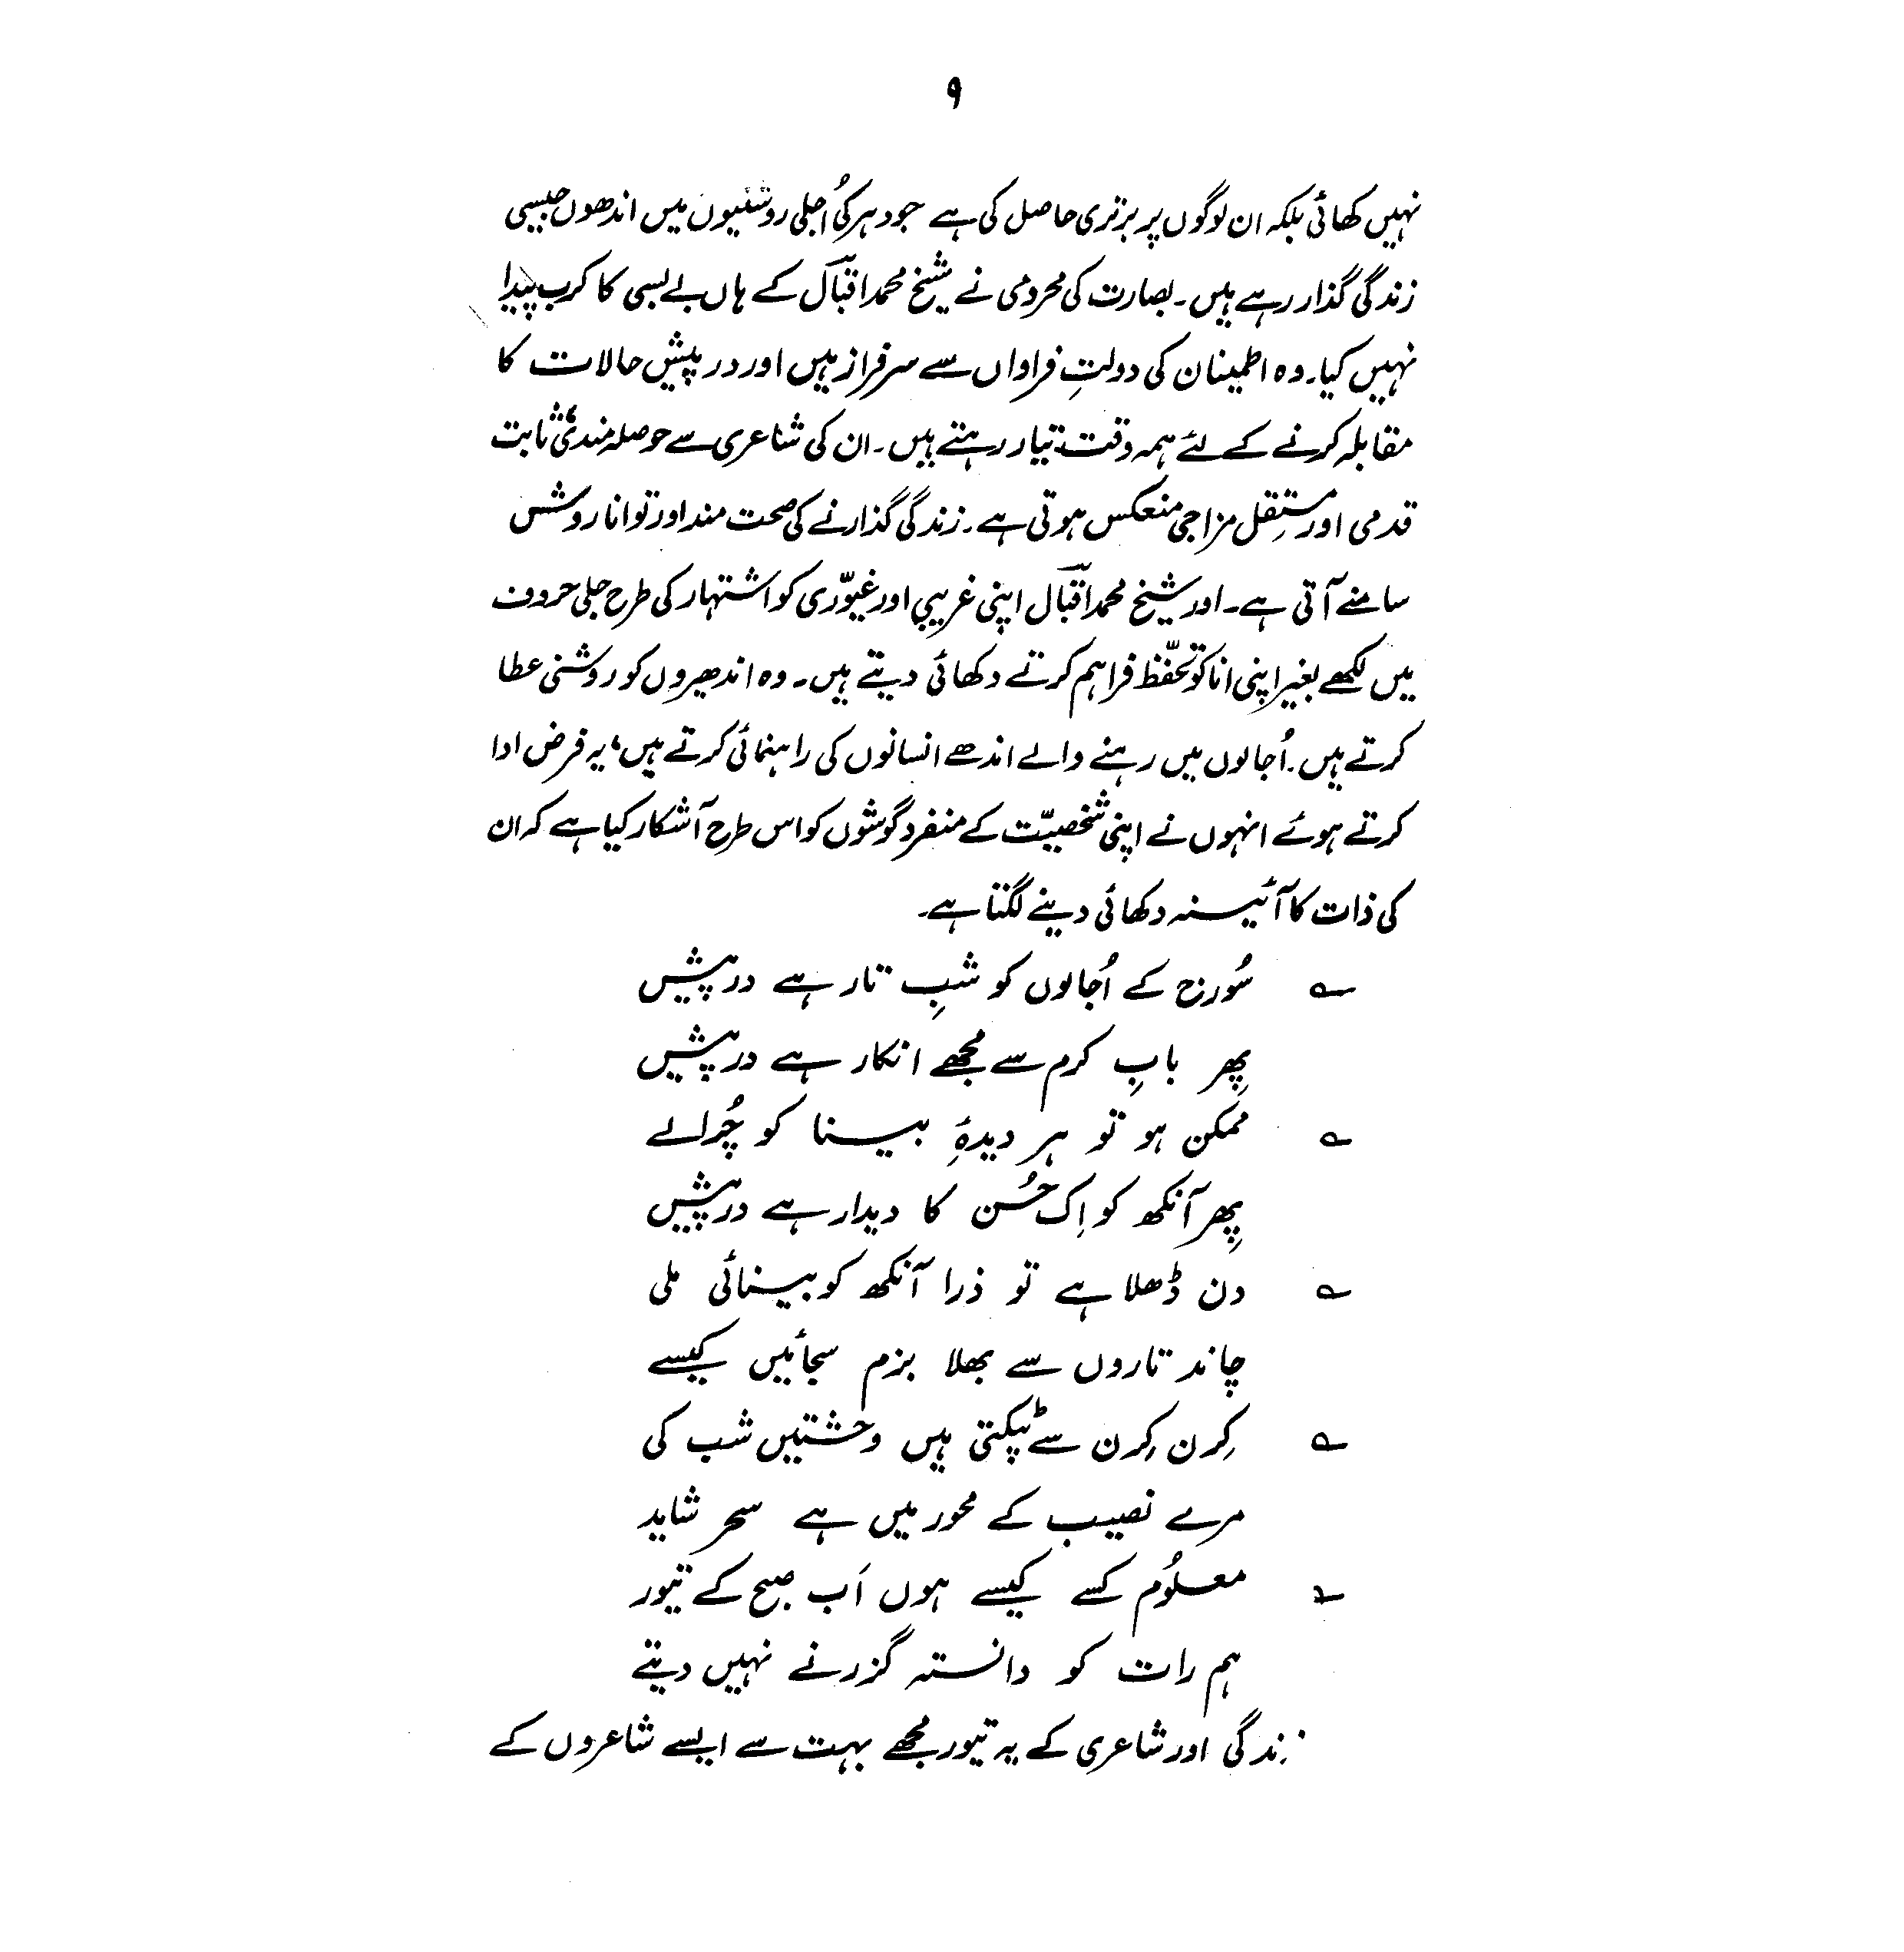 ۹
نہیں کھائی بلکہ ان لوگوں پر برتری حاصل کی ہے جو دہر کی اُجلی روشنیوں میں اندھوں جیسی
زندگی گذار رہے ہیں۔ بصارت کی محرومی نے شیخ محمد اقبالؔ کے ہاں بے بسی کا کرب پیدا
نہیں کیا۔ وہ اطمینان کی دولتِ فراواں سے سرفراز ہیں اور درپیش حالات کا
مقابلہ کرنے کے لئے ہمہ وقت تیار رہتے ہیں۔ ان کی شاعری سے حوصلہ مندی، ثابت
قدمی اور مستقِل مزاجی منعکس ہوتی ہے۔ زندگی گذارنے کی صحت مند اور توانا روش
سامنے آتی ہے۔ اور شیخ محمد اقبالؔ اپنی غریبی اور غیوّری کو اشتہار کی طرح جلی حروف
میں لکھے بغیر اپنی انا کو تحفّظ فراہم کرتے دکھائی دیتے ہیں۔ وہ اندھیروں کو روشنی عطا
کرتے ہیں۔ اُجالوں میں رہنے والے اندھے انسانوں کی راہنمائی کرتے ہیں، یہ فرض ادا
کرتے ہوئے انہوں نے اپنی شخصیّت کے منفرد گوشوں کو اس طرح آشکار کیا ہے کہ ان
کی ذات کا آئینہ دکھائی دینے لگتا ہے۔
؎ سُورج کے اُجالوں کو شبِ تار ہے درپیش
پِھر بابِ کرم سے مجھے انکار ہے درپیش
؎ ممکن ہو تو ہر دیدۂِ بینا کو چُرا لے
پِھر آنکھ کو اِک حُسن کا دیدار ہے درپیش
؎ دن ڈھلا ہے تو ذرا آنکھ کو بینائی ملی
چاند تاروں سے بھلا بزم سجائیں کیسے
؎ کِرن کِرن سے ٹپکتی ہیں وحشتیں شب کی
مرے نصیب کے محور میں ہے سحر شاید
؎ معلُوم کسے کیسے ہوں اَب صبح کے تیور
ہم رات کو دانستہ گزرنے نہیں دیتے
زندگی اور شاعری کے یہ تیور مجھے بہت سے ایسے شاعروں کے